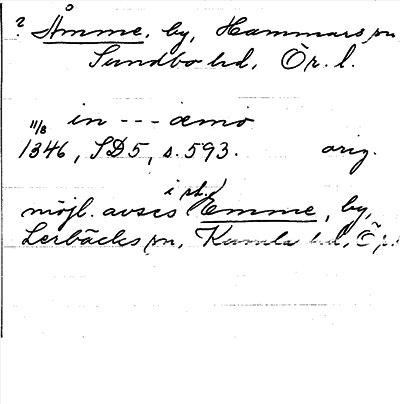 ? Åmme, by, Hammars sn,
Sundbo hd, Ör. l.
11/8 in --- æmo
1346, SD5, s. 593. orig.
möjl. avses i st. Emme, by,
Lerbäcks sn, Kumla hd, Ör.